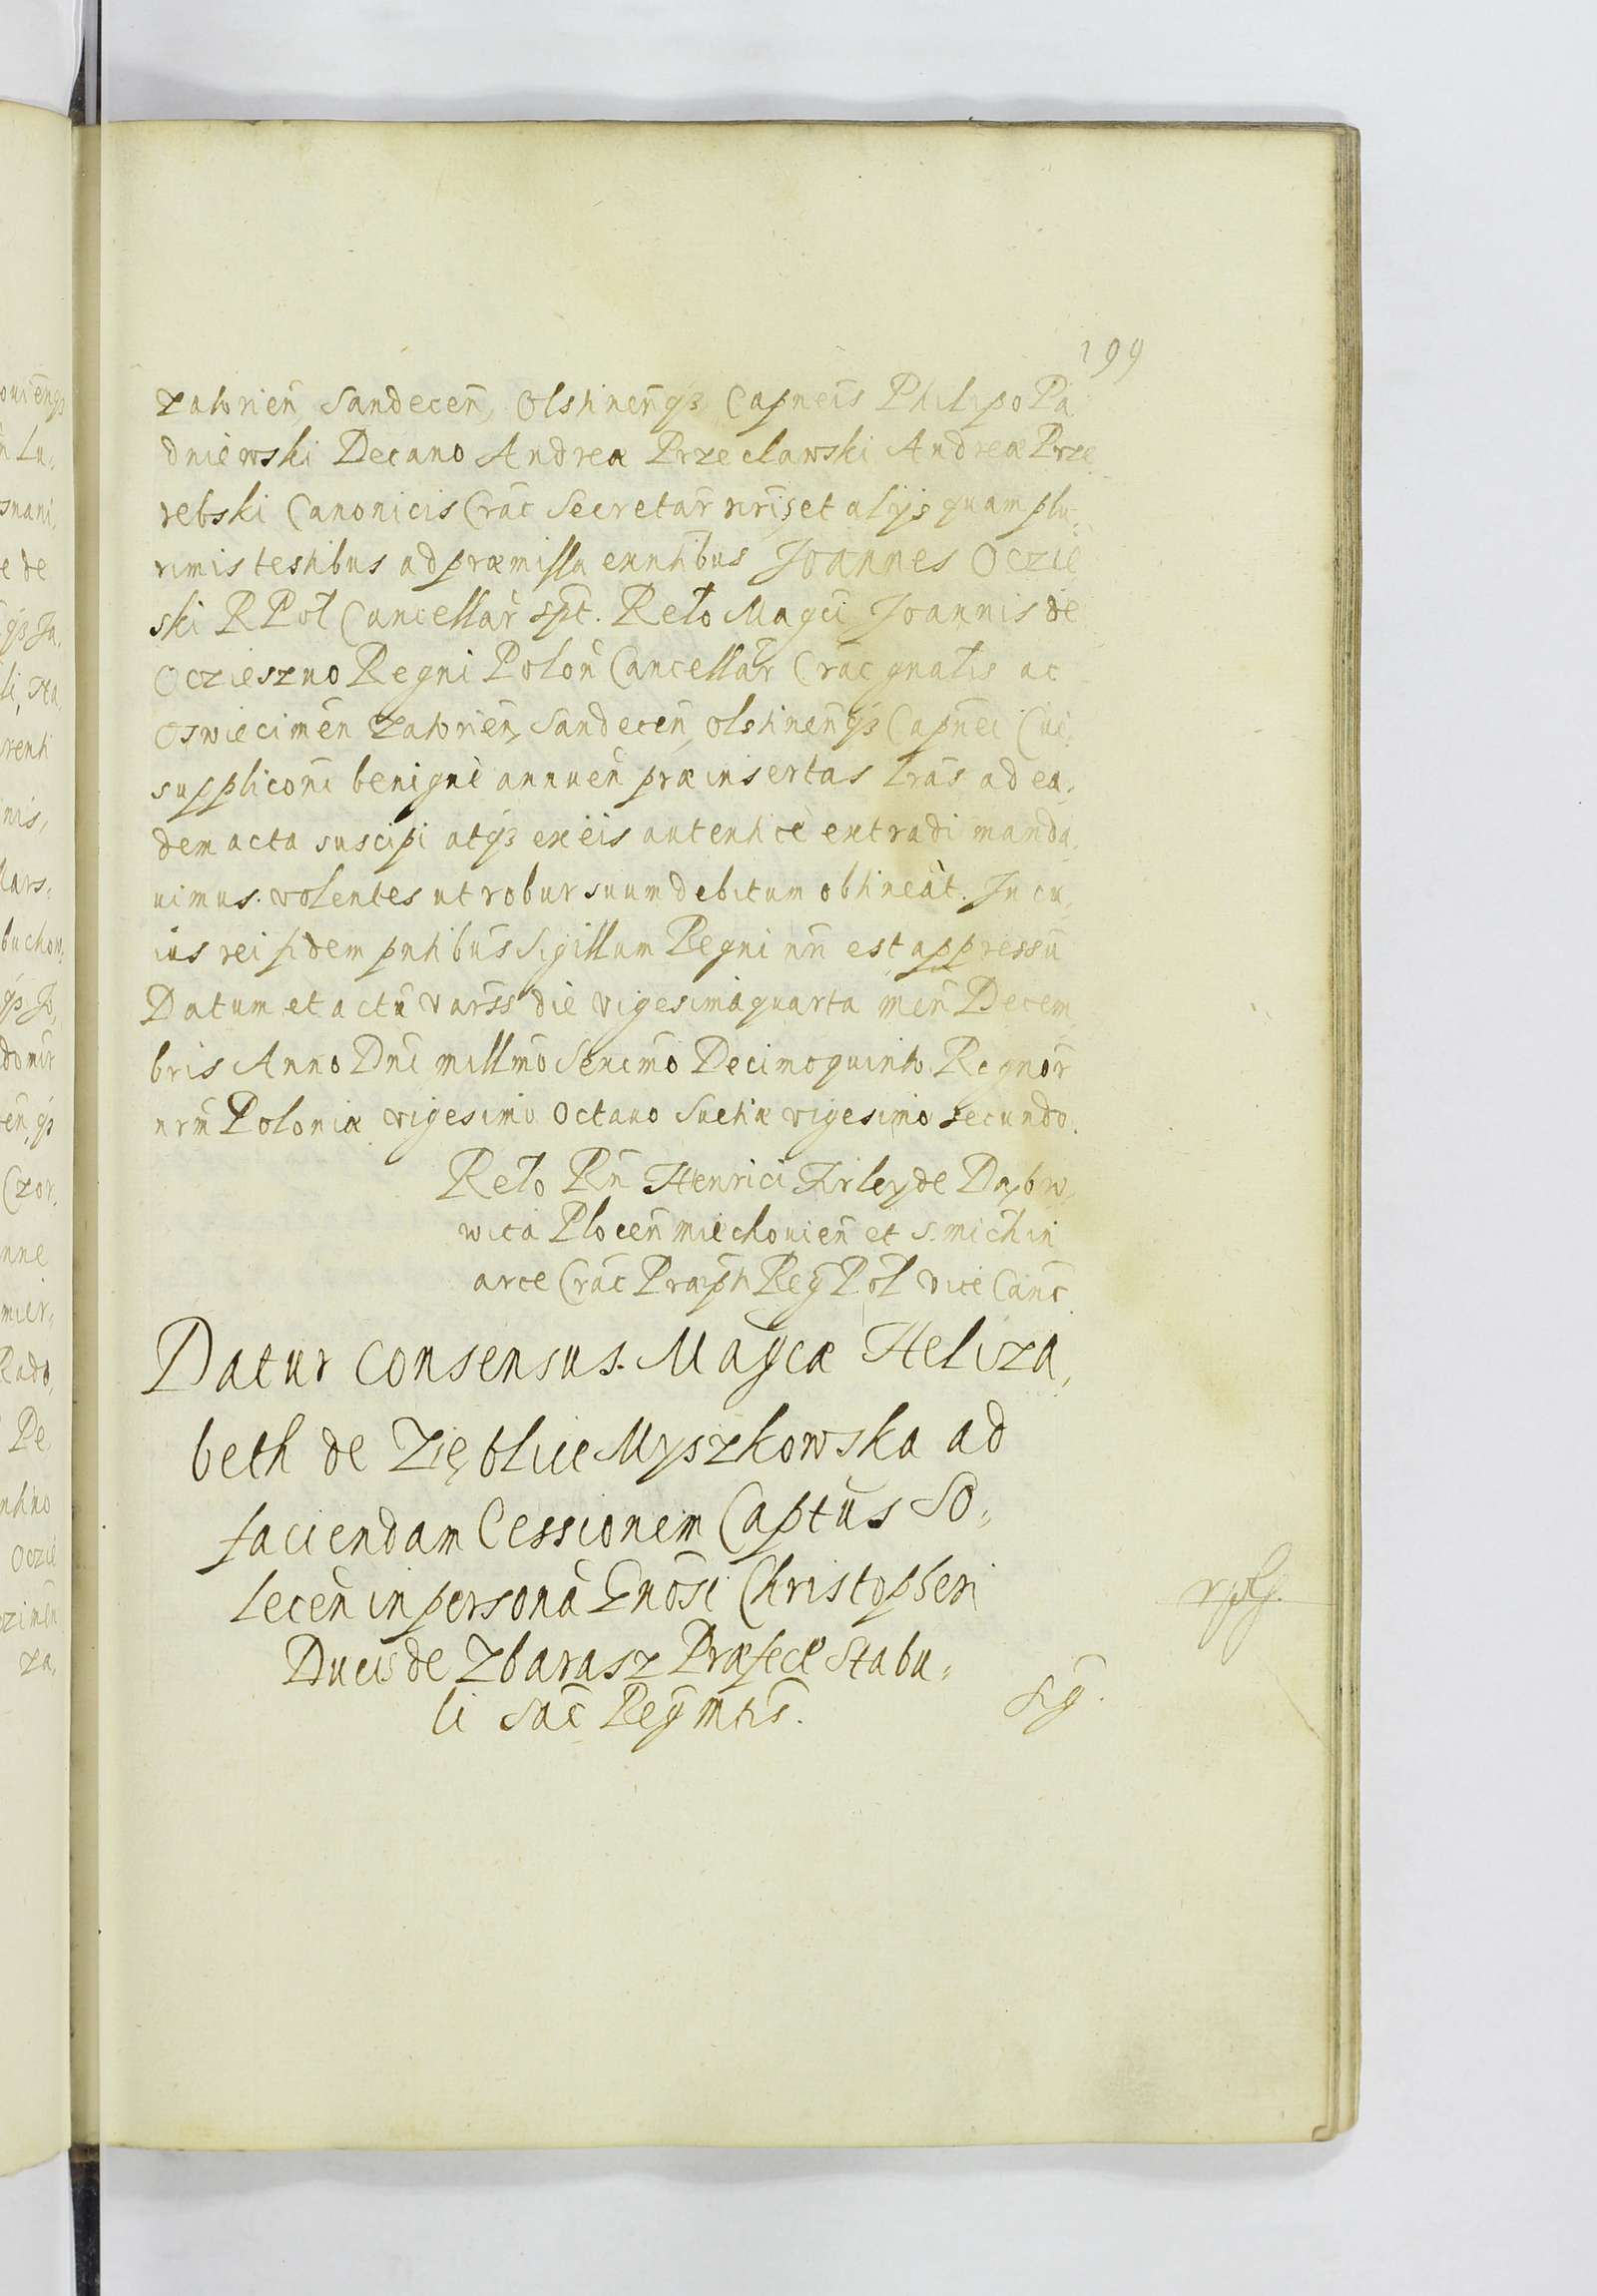 199
zatorien̄, Sandecen̄, Olstinen̄qз Capneis̄ Philipo Pa
dniewski Decano Andrea Przeclawski Andreæ Prze
rebski Canonicis Crac̄ Secretar̄ nr̄is et alijs quamplu:
rimis testibus ad præmissa eūntibus Joannes Oczie
ski R Pol Cancellar̄ spt̄. Relō Magci Joannis de
Oczieszno Regni Polon̄ Cancellar̄ Crac̄ gnalis ac
Oswiecimēn Zatorien̄, Sandecen̄, Olstinen̄qз Capn̄ei Cui,
supplicōni benigne annuen̄ præinsertas Lrās ad ea,
dem acta suscipi atqз ex eis autentice extradi manda,
uimus. volentes ut robur suum debitum obtineāt. In cu,
ius rei fidem pn̄tibus Sigillum Regni nr̄i est appressū
Datum et actū Varss̄ die vigesima quarta men̄ Decem
bris Anno Dn̄i millmō Sexcmō Decimo quinto Regnor̄
nrm̄ Poloniæ vigesimo Octauo Suetiæ vigesimo secundo.
Relō Rn̄ Henrici Firley de Dąbro,
wica Plocen̄ miechouien̄ et S. mich in
arce Crac̄ Præpti Reg̃ Pol̄ vice Canc̄
Datur consensus. Magcæ Heliza,
beth de Zięblice Myszkowska ad
faciendam Cessionem Captūs So,
lecen̄ in personā Gnōsi Christopheri
Ducis de Zbarasz Præfecti Stabu,
li Sac̄ Reg̃ Mtis̄.
Sig̃.